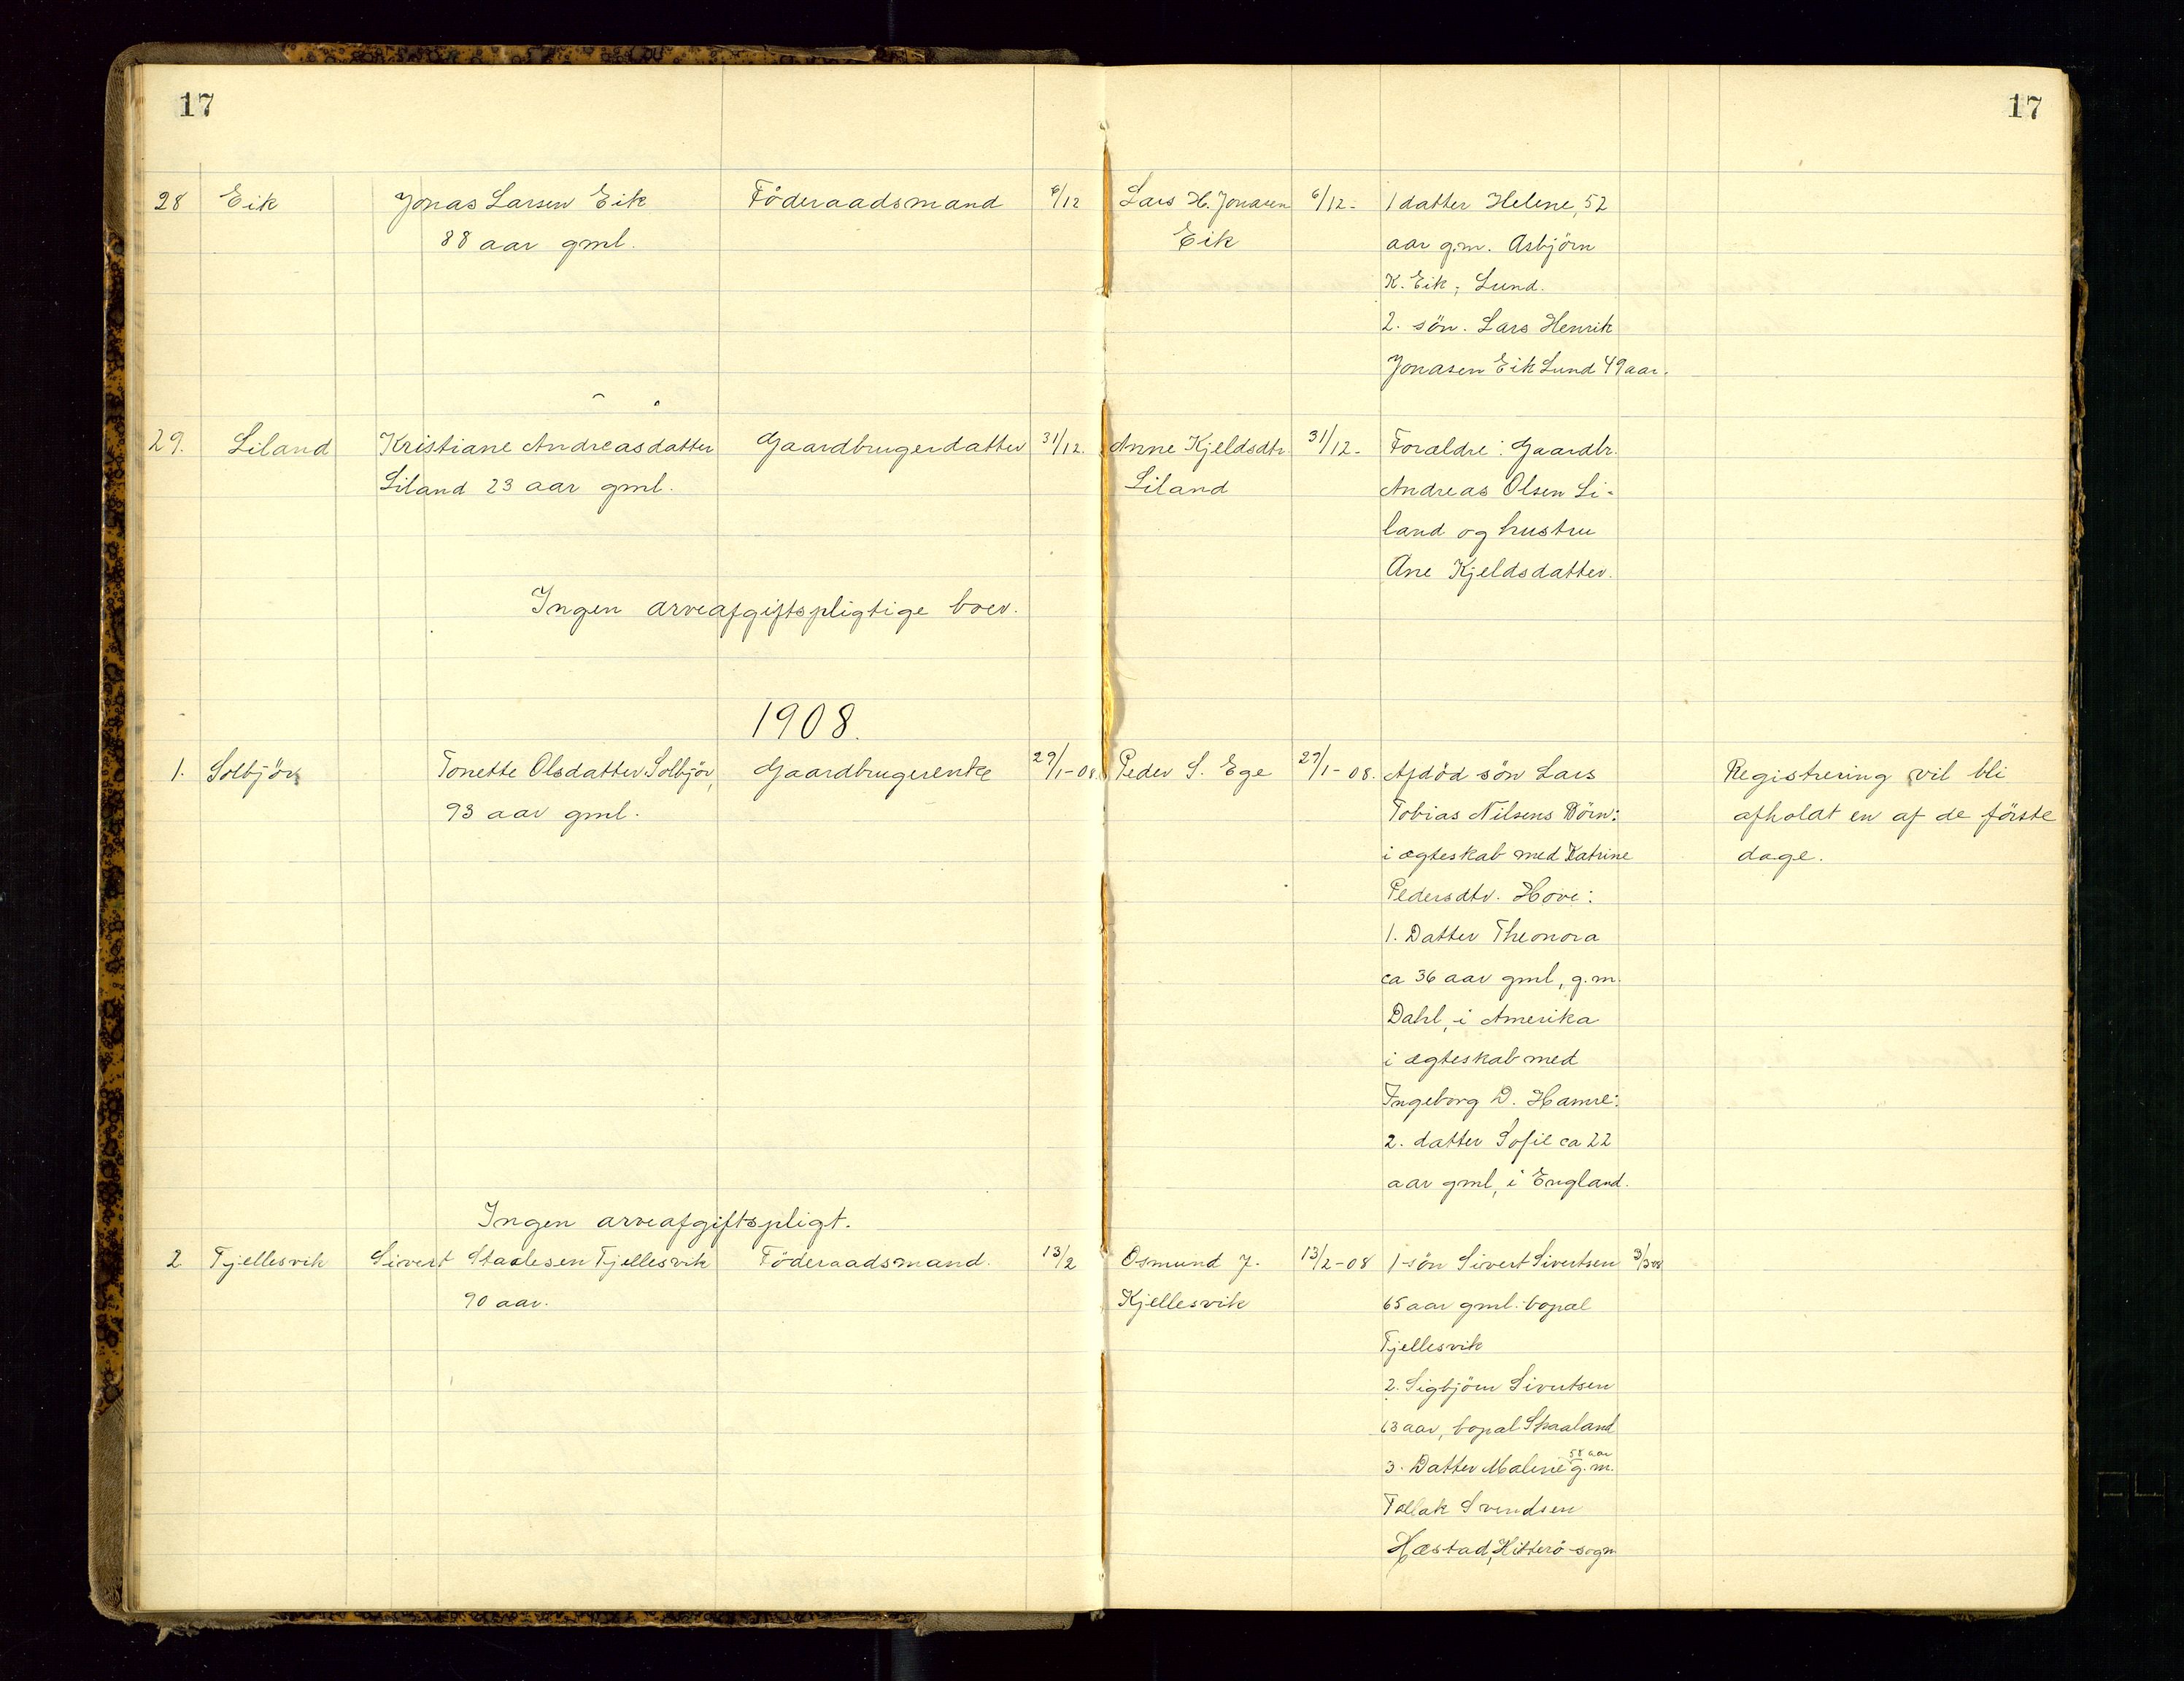 17
17
28 Eik Jonas Larsen Eik Föderaadsmand 6/12 Lars H. Jonasen 6/12- 1 datter Helene, 52
88 aar gml. Eik aar g.m. Asbjörn
K. Eik, Lund.
2. sön. Lars Henrik
Jonasen Eik Lund 49 aar.
29. Liland Kristiane Andreasdatter Gaardbrugerdatter 31/12. Anne Kjeldsdtr. 31/12- Forældre: Gaardbr.
Liland 23 aar gml. Liland Andreas Olsen Li-
land og hustru
Ane Kjeldsdatter.
Ingen arveafgiftspligtige boer.
1908.
1. Solbjör Tonette Olsdatter Solbjör, Gaardbrugerenke 29/1-08. Peder S. Ege 29/1-08. Afdöd sön Lars Registrering vil bli
93 aar gml. Tobias Nilsens Börn: afholdt en af de förste
i ægteskab med Katrine dage.
Pedersdtr. Hove:
1. Datter Theonora
ca 36 aar gml, g.m.
Dahl, i Amerika
i ægteskab med
Ingeborg D. Hamre:
2. datter Sofie ca 22
aar gml, i England.
Ingen arveafgiftspligt.
2 Tjellesvik Sivert Staalesen Tjellesvik Föderaadsmand. 13/2 Osmund J. 13/2-08 1 sön Sivert Sivertsen 3/3 08
90 aar. Kjellesvik 65 aar gml. bopal
Tjellesvik
2. Sigbjörn Sivertsen
63 aar, bopal Skaaland
58 aar
3. Datter Malene g.m.
Tollak Svendsen
Hæstad, Hitterö sogn